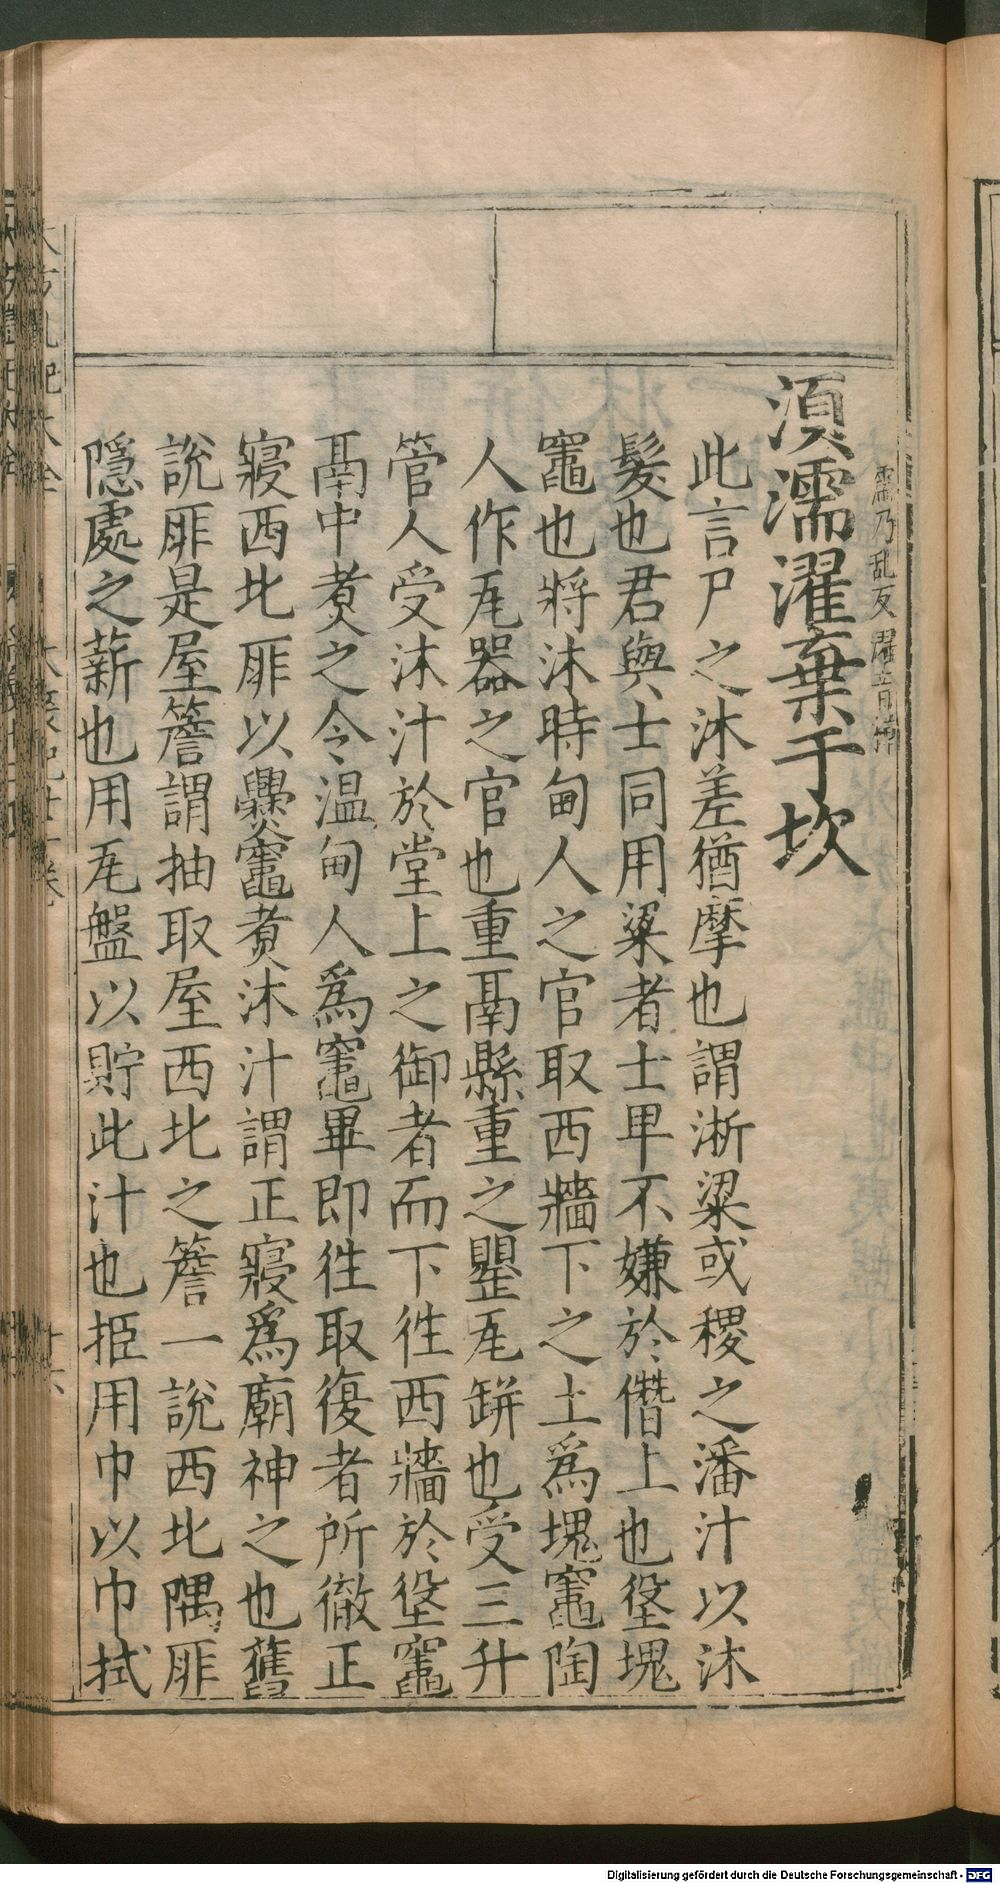 濡乃乱反濯音濁
湏濡濯棄于坎
此言尸之沐差猶摩也謂淅粱或稷之潘汁以沐
髮也君與士同用粱者士卑不嫌於僭上也垼塊
竈也將沐時甸人之官取西牆下之土爲塊竈陶
人作瓦器之官也重鬲縣重之罌瓦缾也受三升
管人受沐汁於堂上之御者而下徃西牆於垼竈
鬲中煑之令温甸人爲竈畢即徃取復者所徹正
寢西北厞以爨竈煑沐汁謂正寢爲廟神之也舊
說厞是屋簷謂抽取屋西北之簷一說西北隅厞
隱處之薪也用瓦盤以貯此汁也挋用巾以巾拭
Digitalisierung gefördert durch die Deutsche Forschungsgemeinschaft - DFG